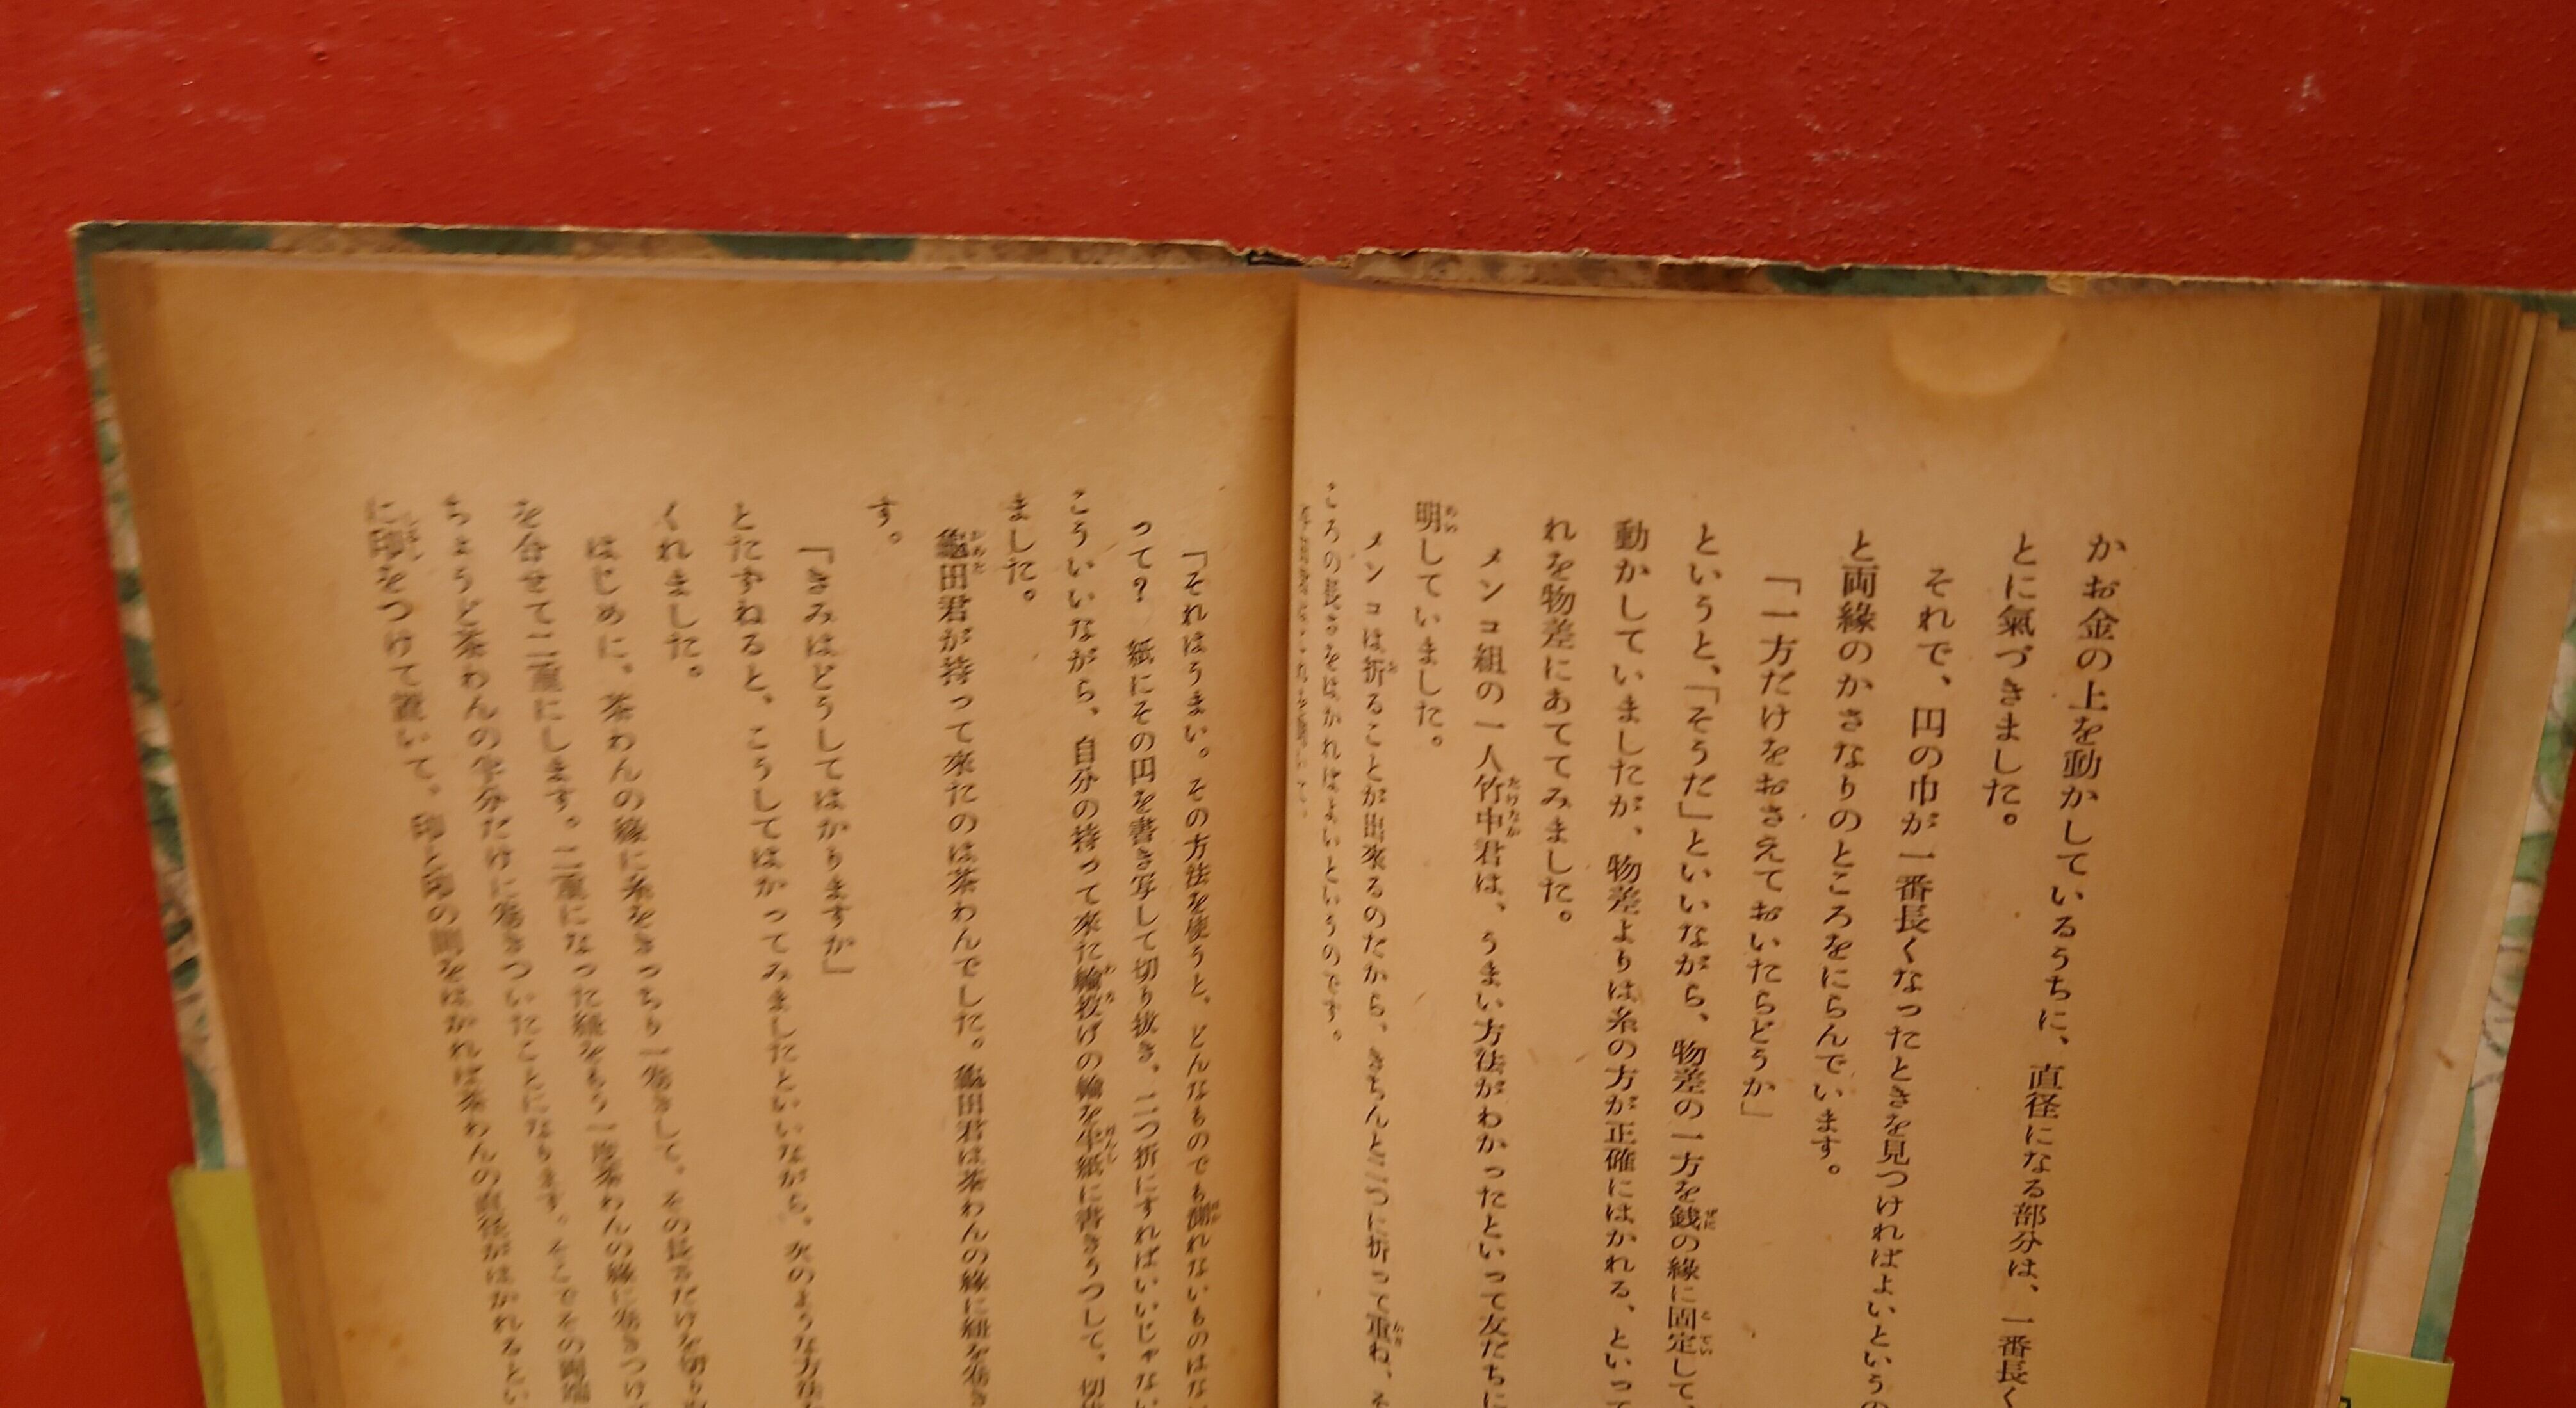 かお金の上を動かしているうちに、直径になる部分は、一番長く
とに氣づきました。
それで、円の巾が一番長くなったときを見つければよいという
と両緣のかさなりのところをにらんでいます。
「一方だけをおさえておいたらどうか」
というと、「そうだ」といいながら、物差の一方を銭の緣に固定して、
動かしていましたが、物差よりは糸の方が正確にはかれる、といって
れを物差にあててみました。
メンコ組の一人竹中君は、うまい方法がわかったといって友だちに
明していました。
メンコは折ることが出來るのだから、きちんと二つに折って重ね、そ
ころの長さをはかればよいというのです。
「それはうまい。その方法を使うと、どんなものでも測れないものはな
って？　紙にその円を書き写して切り抜き、二つ折にすればいいじゃない
こういいながら、自分の持って來た輪投げの輪を半紙に書きうつして、切
ました。
龜田君が持って來たのは茶わんでした。龜田君は茶わんの緣に紐を巻き
す。
「きみはどうしてはかりますか」
とたずねると、こうしてはかってみましたといいながら、次のような方法
くれました。
はじめに、茶わんの緣に糸をきっちり一巻きして、その長さだけを切り
を合せて二重にします。二重になった紐をもう一度茶わんの緣に巻きつけ
ちょうど茶わんの半分だけに巻きついたことになります。そこでその両端
に印をつけて置いて、印と印の間をはかれば茶わんの直径がはかれるとい